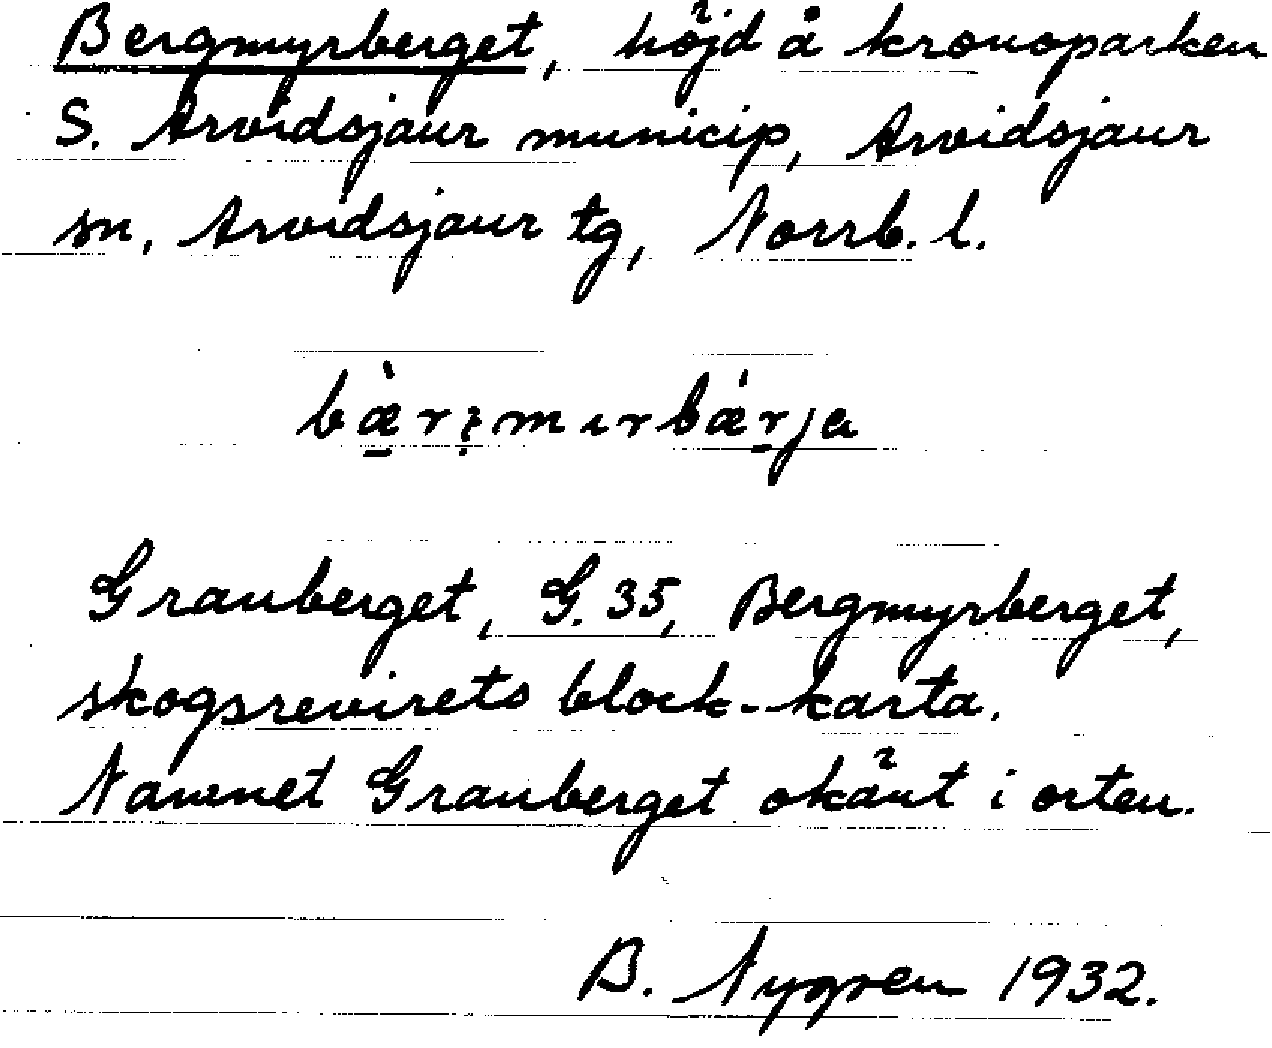 Bergmyrberget, höjd å kronoparken
S. Arvidsjaur municip, Arvidsjaur
sn, Arvidsjaur tg, Norrb. l.
Granberget, G. 35, Bergmyrberget,
skogsrevirets block-karta.
Namnet Granberget okänt i orten.
B. Nygren 1932.